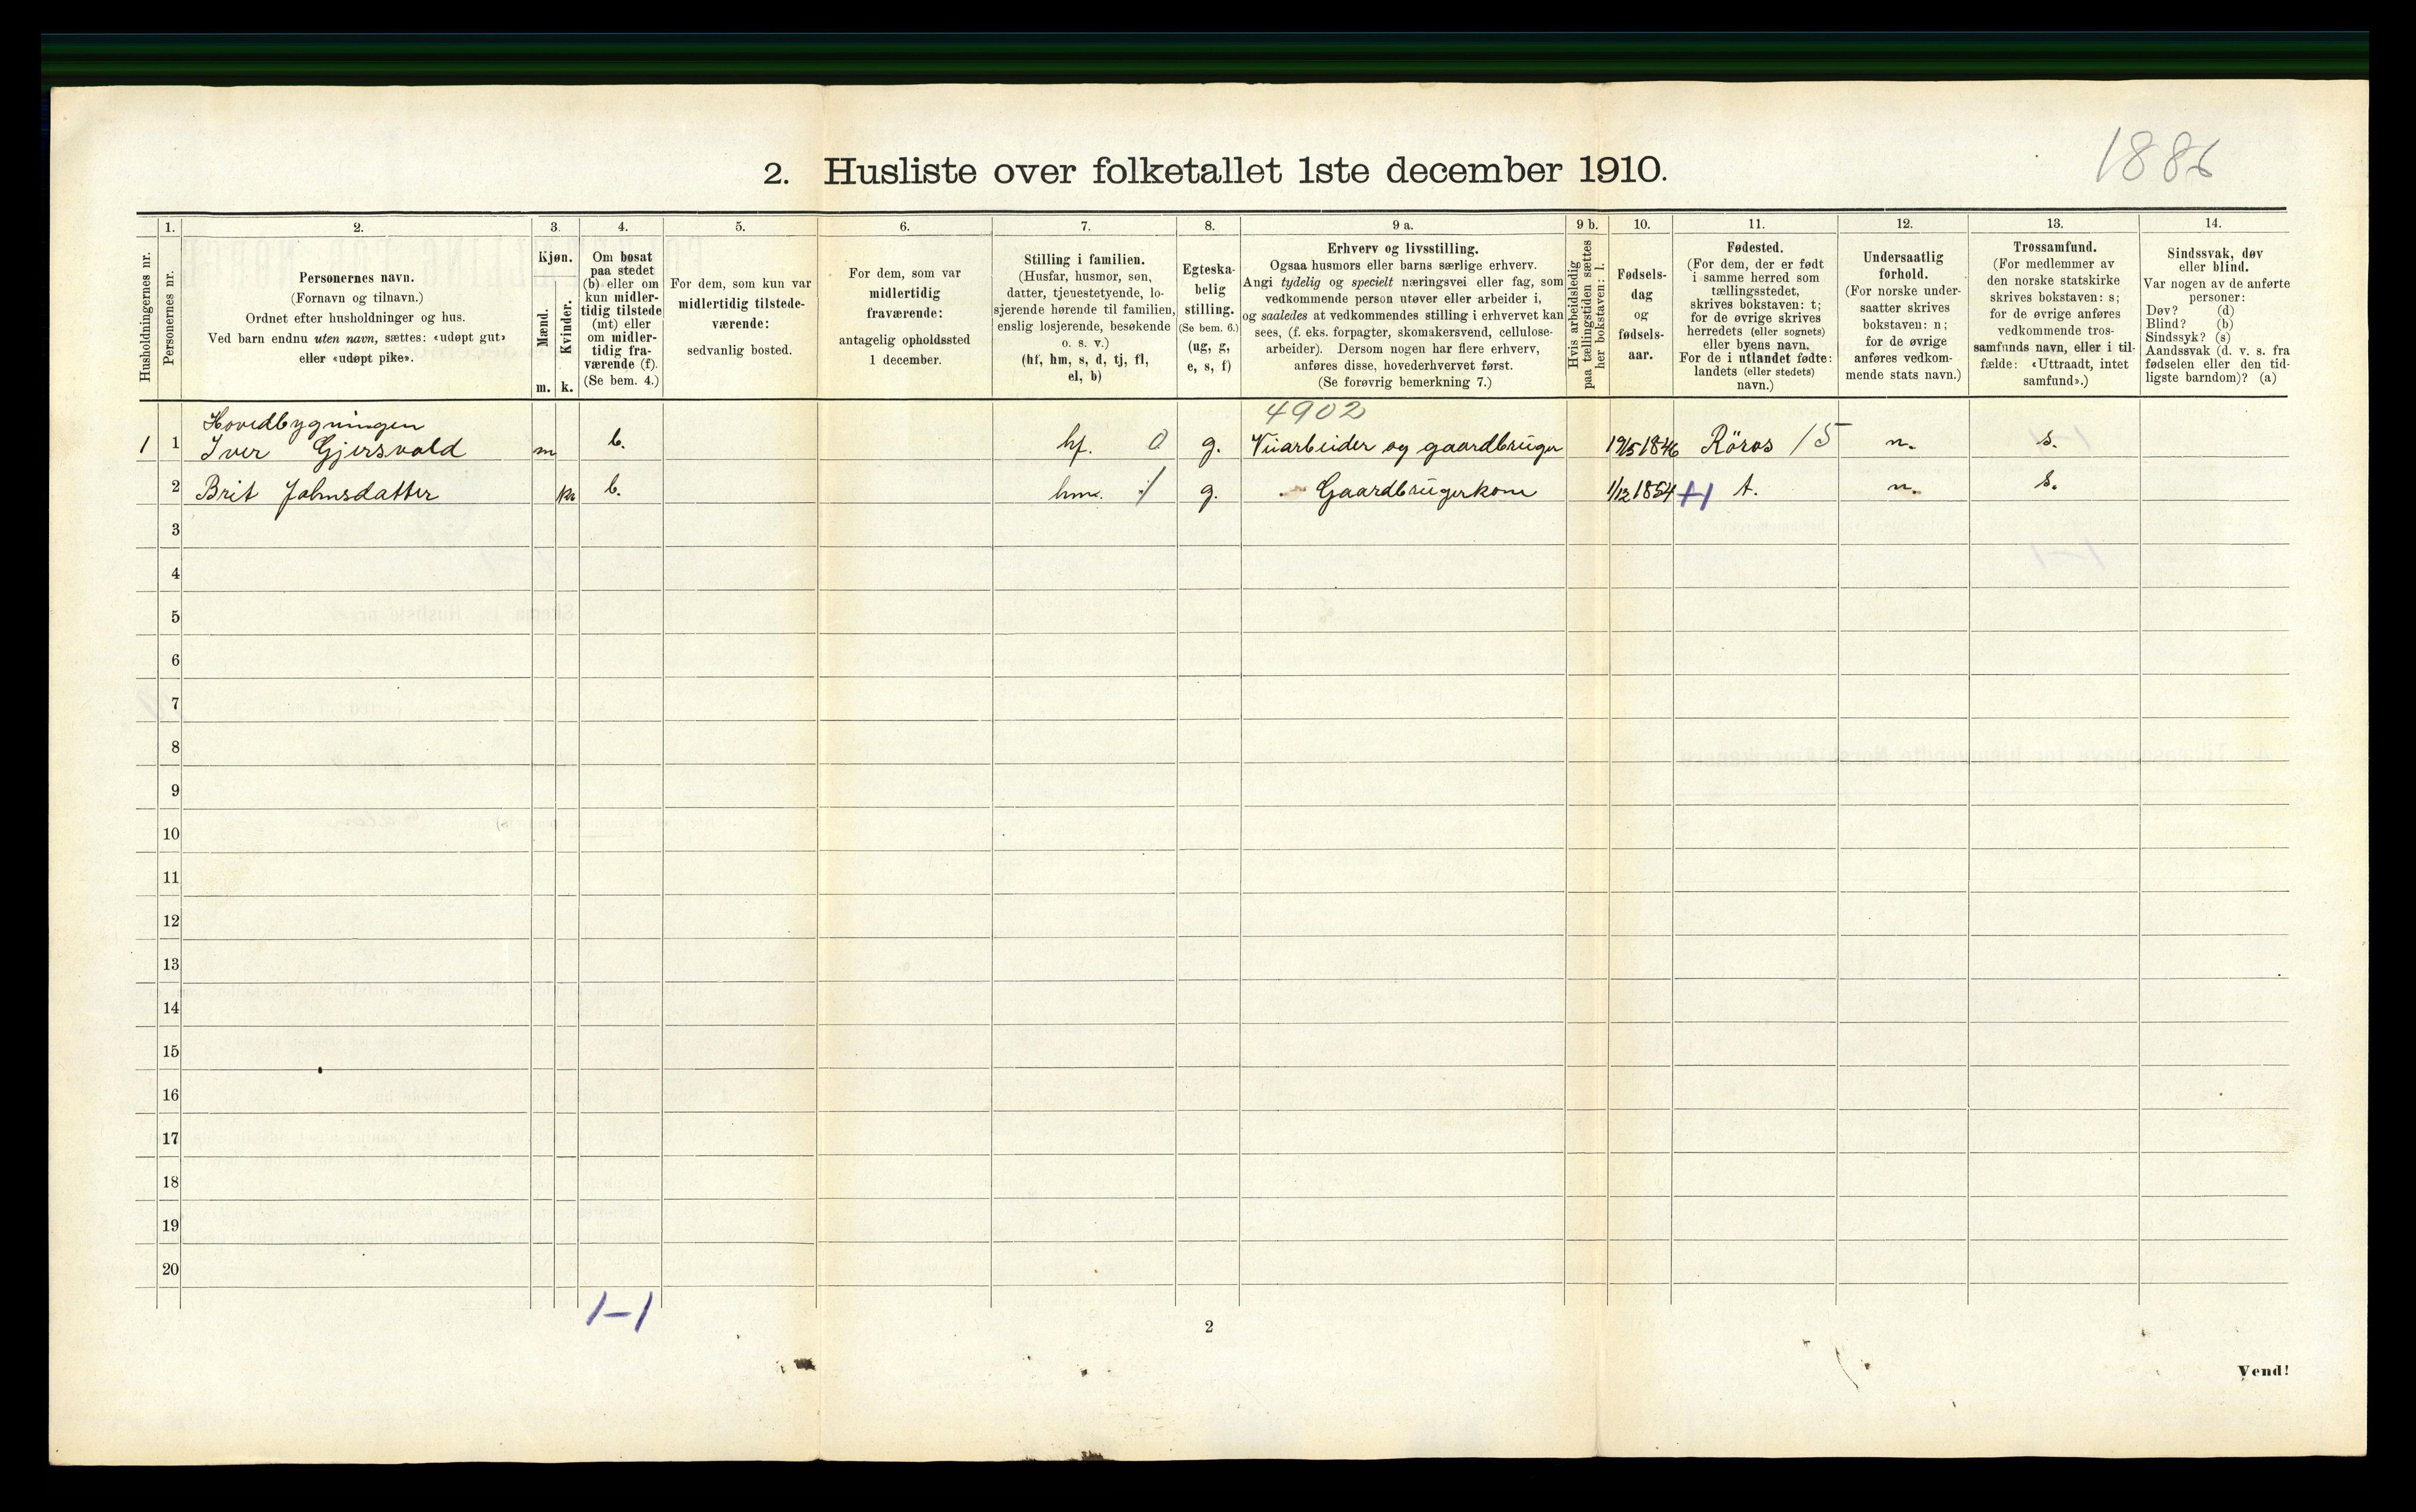 1886
2. Husliste over folketallet 1ste december 1910.
Husholdningernes nr.
1.
Personernes nr.
2.
Personernes navn.
(Fornavn og tilnavn.)
Ordnet efter husholdninger og hus.
Ved barn endnu uten navn, sættes: «udøpt gut»
eller «udøpt pike».
3.
Kjøn.
Mænd.
Kvinder.
m. k.
4.
Om bosat
paa stedet
(b) eller om
kun midler-
tidig tilstede
(mt) eller
om midler-
tidig fra-
værende (f).
(Se bem. 4.)
5.
For dem, som kun var
midlertidig tilstede-
værende:
sedvanlig bosted.
6.
For dem, som var
midlertidig
fraværende:
antagelig opholdssted
1 december.
7.
Stilling i familien.
(Husfar, husmor, søn,
datter, tjenestetyende, lo-
sjerende hørende til familien,
enslig losjerende, besøkende
o. s. v.)
(hf, hm, s, d, tj, fl,
el, b)
8.
Egteska-
belig
stilling.
(Se bem. 6.)
(ug, g,
e, s, f)
9 a.
Erhverv og livsstilling.
Ogsaa husmors eller barns særlige erhverv.
Angi tydelig og specielt næringsvei eller fag, som
vedkommende person utøver eller arbeider i,
og saaledes at vedkommendes stilling i erhvervet kan
sees, (f. eks. forpagter, skomakersvend, cellulose-
arbeider). Dersom nogen har flere erhverv,
anføres disse, hovederhvervet først.
(Se forøvrig bemerkning 7.)
9 b.
Hvis arbeidsledig
paa tællingstiden sættes
her bokstaven: l.
10.
Fødsels-
dag
og
fødsels-
aar.
11.
Fødested.
(For dem, der er født
i samme herred som
tællingsstedet,
skrives bokstaven: t;
for de øvrige skrives
herredets (eller sognets)
eller byens navn.
For de i utlandet fødte:
landets (eller stedets)
navn.)
12.
Undersaatlig
forhold.
(For norske under-
saatter skrives
bokstaven: n;
for de øvrige
anføres vedkom-
mende stats navn.)
13.
Trossamfund.
(For medlemmer av
den norske statskirke
skrives bokstaven: s;
for de øvrige anføres
vedkommende tros-
samfunds navn, eller i til-
fælde: «Uttraadt, intet
samfund».)
14.
Sindssvak, døv
eller blind.
Var nogen av de anførte
personer:
Døv? (d)
Blind? (b)
Sindssyk? (s)
Aandssvak (d. v. s. fra
fødselen eller den tid-
ligste barndom)? (a)
Hovedbygningen 4902
1 1 Iver Gjersvold m b. hf. 0 g. og gaardbruger 19/5 1846 Röros 15 n. s.
2 Brit Johnsdatter k b. hm. g. Gaardbrugerkone 1/12 1854 t. n. s.
3
4
5
6
7
8
9
10
11
12
13
14
15
16
17
18
19
20
1-1
2
Vend!